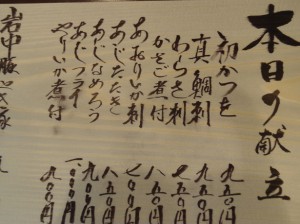 本日の献立
初かつを 九五〇円
真鯛刺 九五〇円
わらさ刺 七五〇円
かさご煮付 八五〇円
あおりいか刺 七〇〇円
あじたたき 八五〇円
あじなめろう 九〇〇円
あじフライ 一〇〇〇円
やりいか煮付 九〇〇円
岩中豚